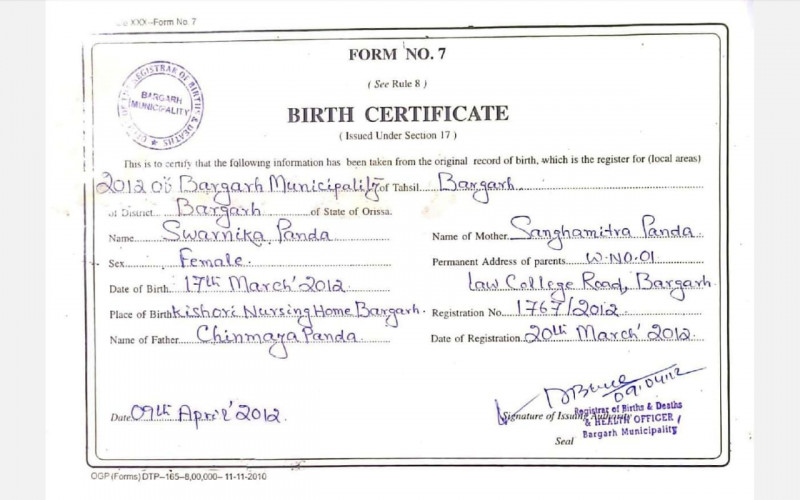 XXX-Form No. 7
FORM NO. 7
( See Rule 8 )
REGISTRAR OF BIRTHS & DEATHS
BARGARH
MUNICIPALITY
BIRTH CERTIFICATE
( Issued Under Section 17 )
This is to certify that the following information has been taken from the original record of birth, which is the register for (local areas)
2012 of Bargarh Municipality of Tahsil Bargarh
of District Bargarh of State of Orissa.
Name Swarnika Panda Name of Mother Sanghamitra Panda
Sex Female Permanent Address of parents W.NO.01
Date of Birth 17th March'2012 Law College Road, Bargarh
Place of Birth Kishori Nursing Home Bargarh. Registration No. 1767/2012
Name of Father Chinmaya Panda Date of Registration 20th March'2012
09/04/12
Date 09th April'2012 Signature of Issuing Authority
Registrar of Births & Deaths
& HEALTH OFFICER
Seal Bargarh Municipality
OGP (Forms) DTP-165-8,00,000-11-11-2010